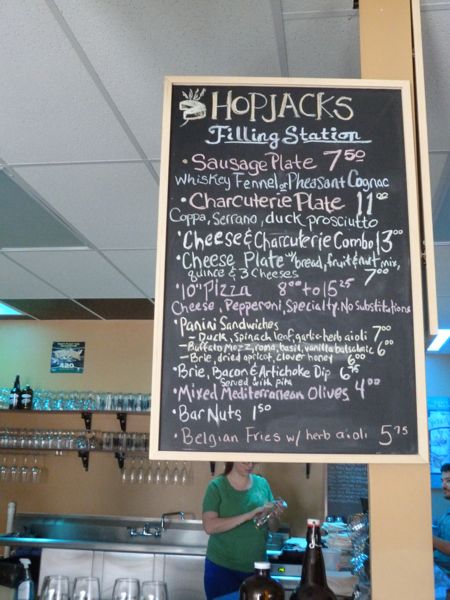 HOPJACKS
Filling Station
• Sausage Plate 7⁵⁰
Whiskey Fennel or Pheasant Cognac
• Charcuterie Plate 11⁰⁰
Coppa, Serrano, duck prosciutto
• Cheese & Charcuterie Combo 13⁰⁰
• Cheese Plate w/ bread, fruit & nut mix,
quince & 3 cheeses 7⁰⁰
• 10" Pizza 8⁰⁰ to 15²⁵
Cheese, Pepperoni, Specialty. No Substitutions
• Panini Sandwiches
- Duck, Spinach leaf, garlic-herb aioli 7⁰⁰
- Buffalo Mozz, roma, basil, vanilla balsamic 6⁰⁰
- Brie, dried apricot, clover honey 6⁰⁰
• Brie, Bacon & Artichoke Dip 6⁷⁵
Served with pita
• Mixed Mediterranean Olives 4⁰⁰
• Bar Nuts 1⁵⁰
• Belgian Fries w/ herb aioli 5⁷⁵